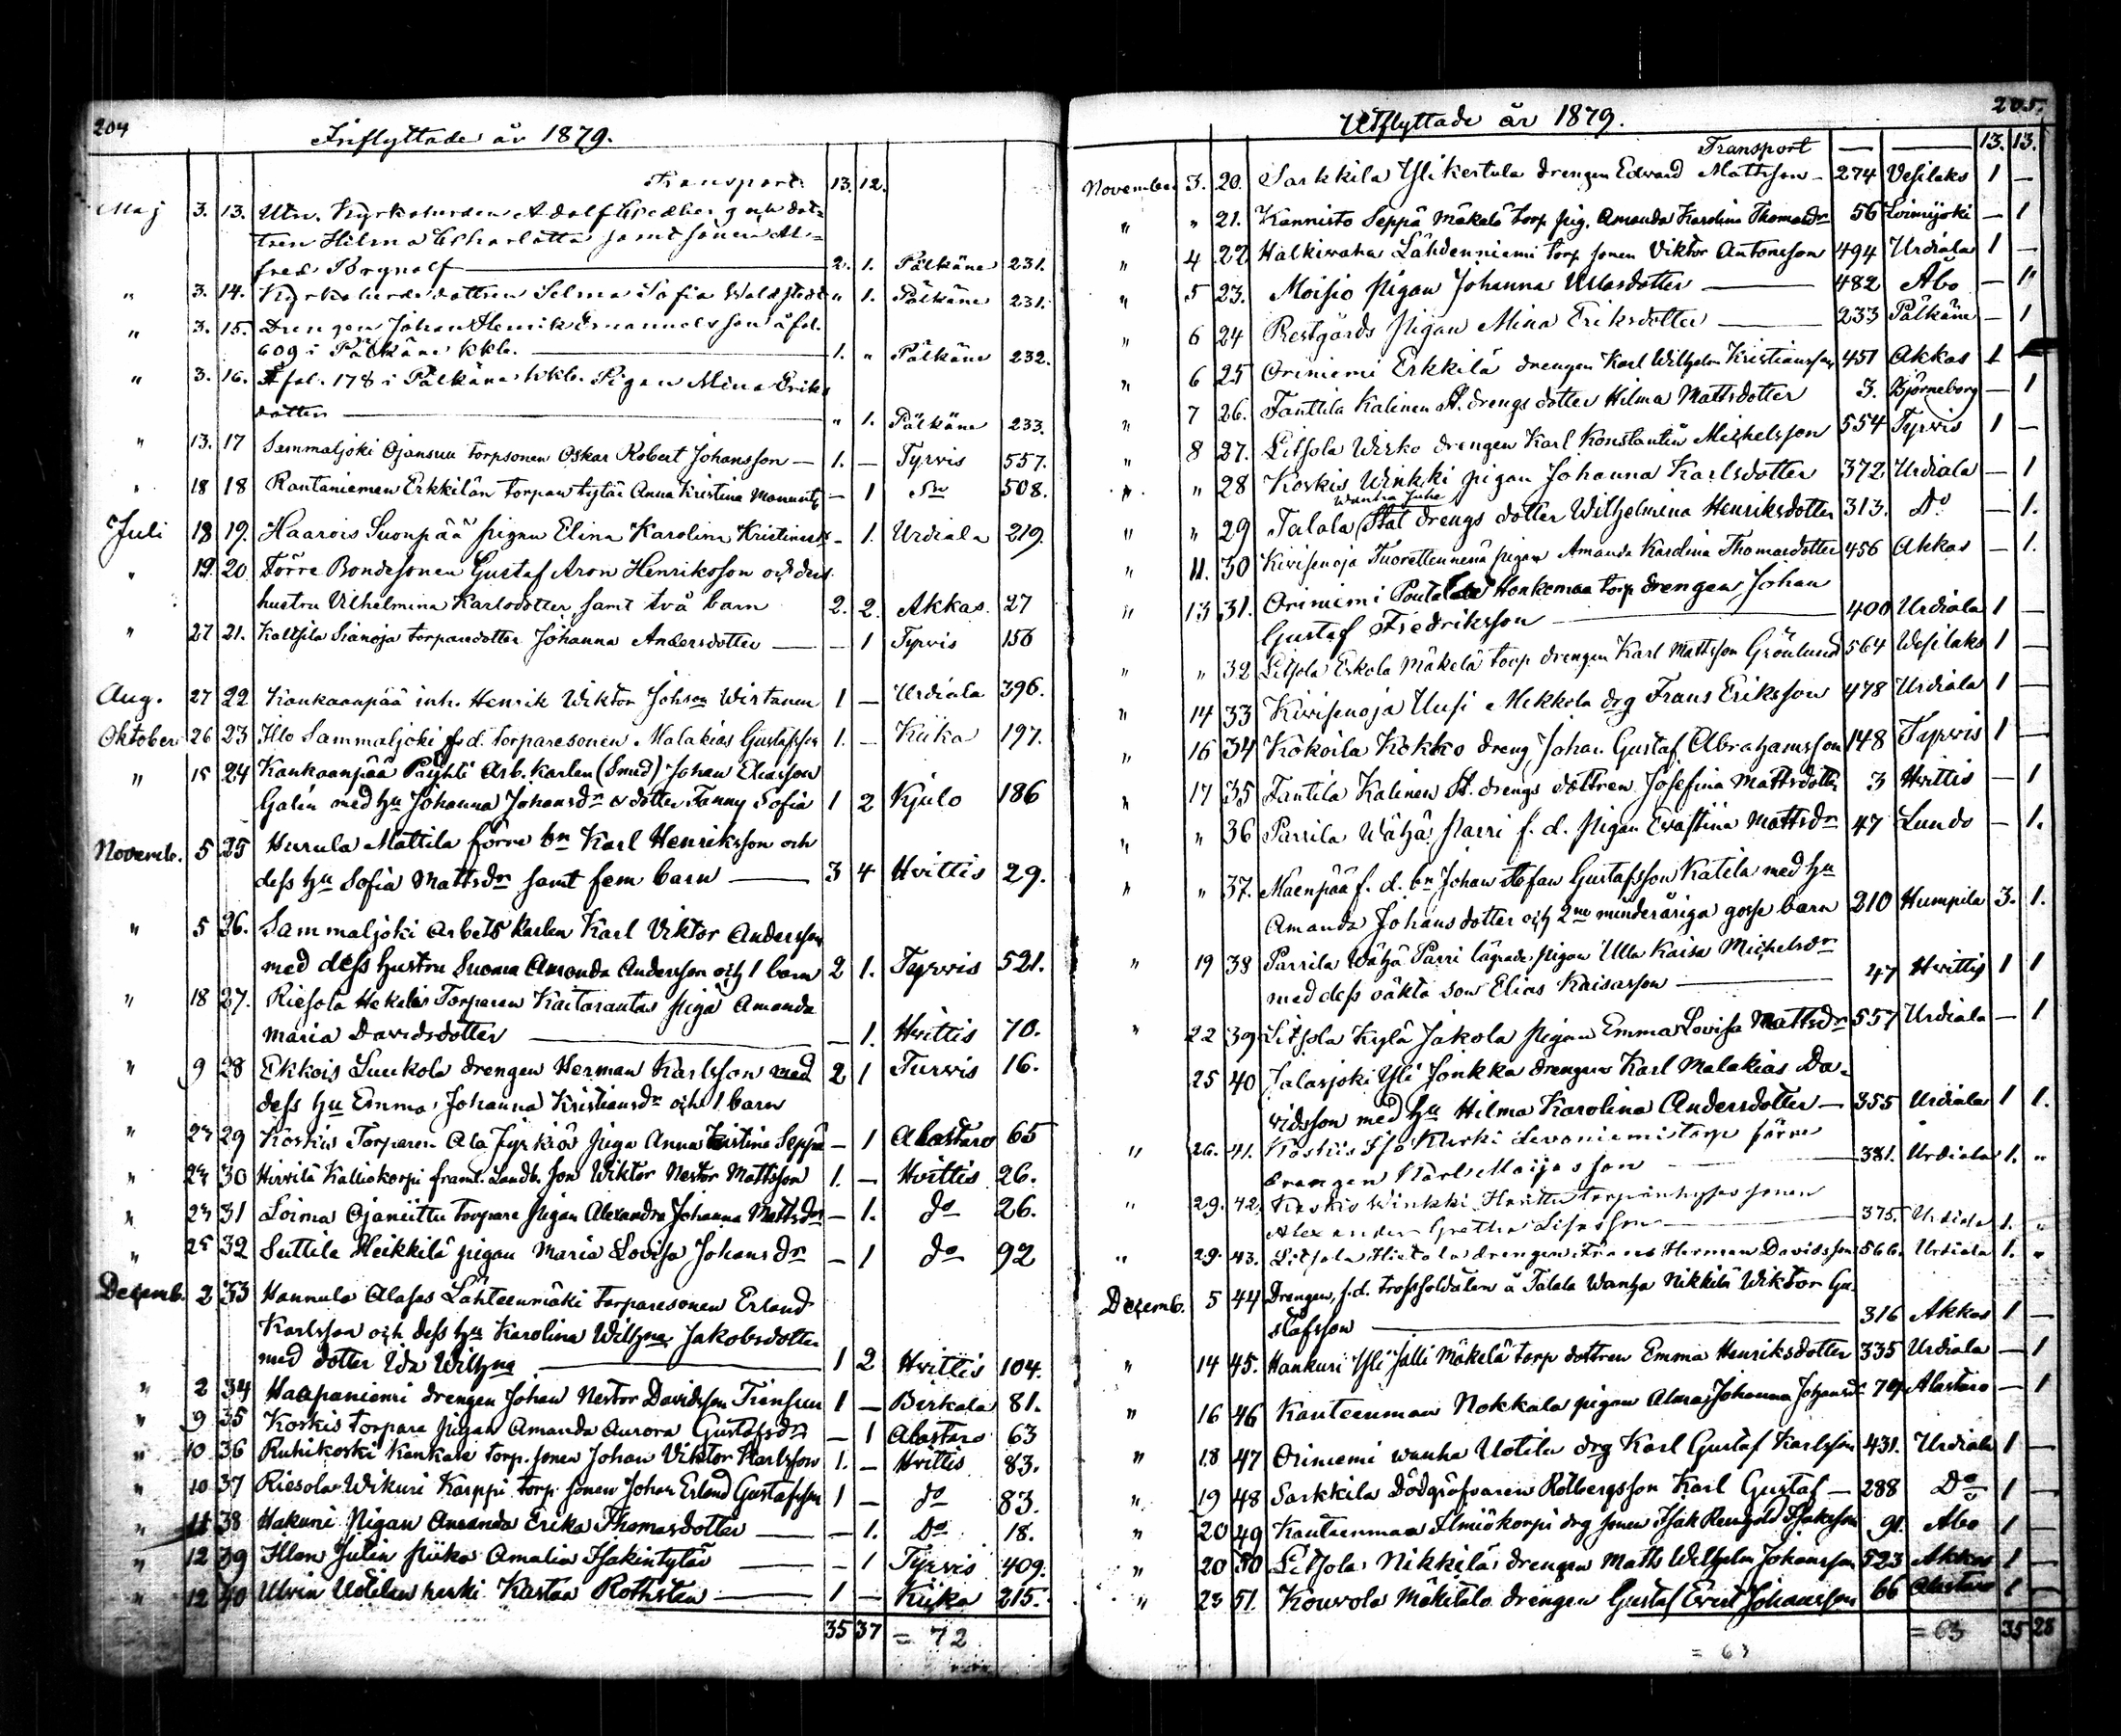 204
Inflyttade år 1879.
Transport 13. 12.
Maj 3. 13. Utn. Kyrkoherden Adolf Hedberg och dot=
tren Hilma Charlotta samt sonen Al=
fred Brynolf 2. 1. Pälkäne 231.
" 3. 14. Kyrkoherdedottren Selma Sofia Waldstedt " 1. Pälkäne 231.
" 3. 15. Drengen Johan Henrik Emanuelsson å fol.
609 i Pälkäne kkb. 1. " Pälkäne 232.
" 3. 16. Å fol. 178 i Pälkäne kkb. Pigan Mina Eriks
dotter " 1. Pälkäne 233.
" 13. 17 Sammaljoki Ojansuu torpsonen Oskar Robert Johansson 1. — Tyrvis 557.
" 18 18 Rautaniemen Erkkilän torpan tytär Anna Kristina — 1 508.
Juli 18 19. Haarois Suonpää pigan Elina Karolina - 1. Urdiala 219.
" 19. 20 Förre Bondesonen Gustaf Aron Henriksson och dess
hustru Vilhelmina Karlsdotter samt två barn 2. 2. Akkas. 27
" 27 21. Kaltsila Sianoja torparedotter Johanna Andersdotter — 1 Tyrvis 156
Aug. 27 22 Kankaanpää inh. Henrik Wiktor Johson Wirtanen 1 — Urdiala 396.
Oktober 26 23 Illo Sammaljoki f.d. torparesonen Malakias Gustafsson 1. — Kiika 197.
" 15 24 Kankaanpää Arb. karlen (Smed) Johan Eliasson
Galin med hu Johanna Johansdr o dotter Fanny Sofia 1 2 Kjulo 186
Novemb. 5 25 Hurula Mattila förre bn Karl Henriksson och
dess hu Sofia Mattsdr samt fem barn 3 4 Hvittis 29.
" 5 26. Sammaljoki Arbets karlen Karl Viktor Andersson
med dess hustru Suoma Amanda Andersson och 1 barn 2 1. Tyrvis 521.
" 18 27. Riesola Torparen Kaitarantas piga Amanda
Maria Davidsdotter — 1. Hvittis 70.
" 9 28 Ekkois Luukola drengen Herman Karlsson med 2 1 Turvis 16.
dess hu Emma Johanna Kristiansdr och 1 barn
" 23 29 Koskis Torparen Ala Jyrkiös piga Anna Kristina Seppä — 1 Alastaro 65
" 23 30 Hirvilä Kalliokorpi framl. Landb. son Wiktor Nestor Mattsson 1. — Hvittis 26.
" 23 31 Loima Ojaniittu torpare pigan Alexandra Johanna Mattsdr — 1. do 26.
" 25 32 Suttila Heikkilä pigan Maria Lovisa Johansdr — 1 do 92
Decemb. 2 33 Hannula Alasas Lähteenmäki torparesonen Erland
Karlsson och dess hu Karolina Wilhna Jakobsdotter
med dotter Ida Wilhna 1 2 Hvittis 104.
" 2 34 Haapaniemi drengen Johan Nestor Davidsson 1 — Birkala 81.
" 9 35 Koskis torpare pigan Amanda Aurora Gustafsdr — 1 Alastaro 63
" 10 36 Ruhikoski Kankare torp. sonen Johan Viktor Karlsson 1. — Hvittis 83.
" 10 37 Riesola Wikuri Karppi torp sonen Johan Erland Gustafsson 1 — do 83.
" 11 38 Hakuni Pigan Amanda Erika Thomasdotter — 1. Do 18.
" 12 39 Illon Julin piika Amalia Isakintytär — 1 Tyrvis 409.
" 12 40 Ulvin Uotilan renki Kustaa Rothsten 1 — Kiika 215.
35 37 = 72
205.
Utflyttade år 1879.
Transport — — 13. 13.
November 3. 20. Sarkkila Yli Kertula drengen Edward Mattsson 274 Vesilaks 1 —
" " 21. Kännistö Seppä Mäkelä torp pig. Amanda Karolina Thomasdr 56 Loimijoki — 1
" 4 22 Halkivaha Lähdenniemi torp sonen Viktor Antonsson 494 Urdiala 1 —
" 5 23. Moisio pigan Johanna 482 Åbo — 1
" 6 24 Restgårds pigan Mina Eriksdotter 233 Pälkäne — 1
" 6 25 Oriniemi Erkkilä drengen Karl Wilhelm Kristiansson 451 Akkas 1 —
" 7 26. Fanttila Kalinen St. drengs dotter Hilma Mattsdotter 3. Björneborg — 1
" 8 27. Litsola Wirko drengen Karl Konstantin Michelsson 554 Tyrvis 1 —
" " 28 Koskis Winkki pigan Johanna Karlsdotter 372 Urdiala — 1
" " 29 Talala Wanha Juho Stat drengs dotter Wilhelmina Henriksdotter 313. Do — 1.
" 11. 30 Kivisenoja pigan Amanda Karolina Thomasdotter 456 Akkas — 1.
" 13 31. Oriniemi Honkemaa torp drengen Johan
Gustaf Fredriksson 400 Urdiala 1 —
" " 32 Litsola Eskola Mäkelä torp drengen Karl Mattsson Grönlund 564 Wesilaks 1 —
" 14 33 Kivisenoja Uusi Mekkola drg Frans Eriksson 478 Urdiala 1 —
" 16 34 Kokoila Kokko dreng Johan Gustaf Abrahamsson 148 Tyrvis 1 —
" 17 35 Fantila Kalinen St. drengs dottren Josefina Mattsdotter 3 Hvittis — 1
" " 36 Parrila Wähä Parri f. d. pigan Evastina Mattsdr 47 Lundo — 1.
" " 37. Maenpää f. d. bn Johan Stefan Gustafsson Katila med hu
Amanda Johansdotter och 2ne minderåriga gosse barn 210 Humpila 3. 1.
" 19 38 Parrila Wähä Parri lägrade pigan Ulla Kaisa Michelsdr
med dess oäkta son Elias Kaisasson 47 Hvittis 1 1
" 22 39 Litsola Kylä Jakola pigan Emma Lovisa Mattsdr 557 Urdiala — 1
25 40 Jalasjoki Yli Jonkka drengen Karl Malakias Da=
vidsson med hu Hilma Karolina Andersdotter — 355 Urdiala 1 1.
" 26. 41. Koskis Iso Kurki Levaniemi torp förre
drengen Karl Maijasson 381. Urdiala 1. "
" 29. 42. Koskis Winkki torpinhyses sonen
Alexander Gretha Lisasson 375. Urdiala 1. "
" 29. 43. Litsola Hietala drengen Frans Herman Davidsson 566. Urdiala 1. "
Decemb. 5 44 Drengen, f.d. trossoldaten å Talala Wanha Nikkilä Wiktor Gu=
stafsson 316 Akkas 1 —
" 14 45. Hankuri Yli Jalli Mäkelä torp dottren Emma Henriksdotter 335 Urdiala — 1
" 16 46 Kauteenmaa Nokkala pigan Johanna Johansdr Alastaro — 1
" 18 47 Oriniemi Wanha Uotila drg Karl Gustaf Karlsson 431. Urdiala 1 —
" 19 48 Sarkkila Dödgräfvaren Rolbergsson Karl Gustaf — 288 Do 1 —
" 20 49 Kauteenmaa drg sonen Isak Isaksson 91. Åbo 1 —
" 20 50 Litsola Nikkilä drengen Matts Wilhelm Johansson 523 Akkas 1 —
" 23 51. Kouvola Mäkitalo drengen Gustaf Evert Johansson 66 Alastaro 1 —
= 63 35 28
= 63